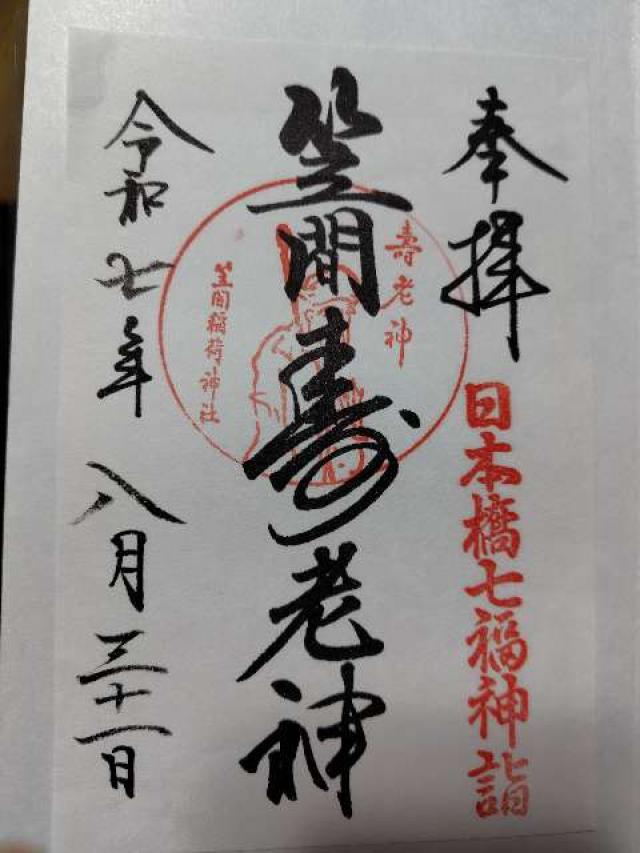 奉拝
日本橋七福神詣
笠間寿老神
壽老神
笠間稲荷神社
令和七年八月三十一日